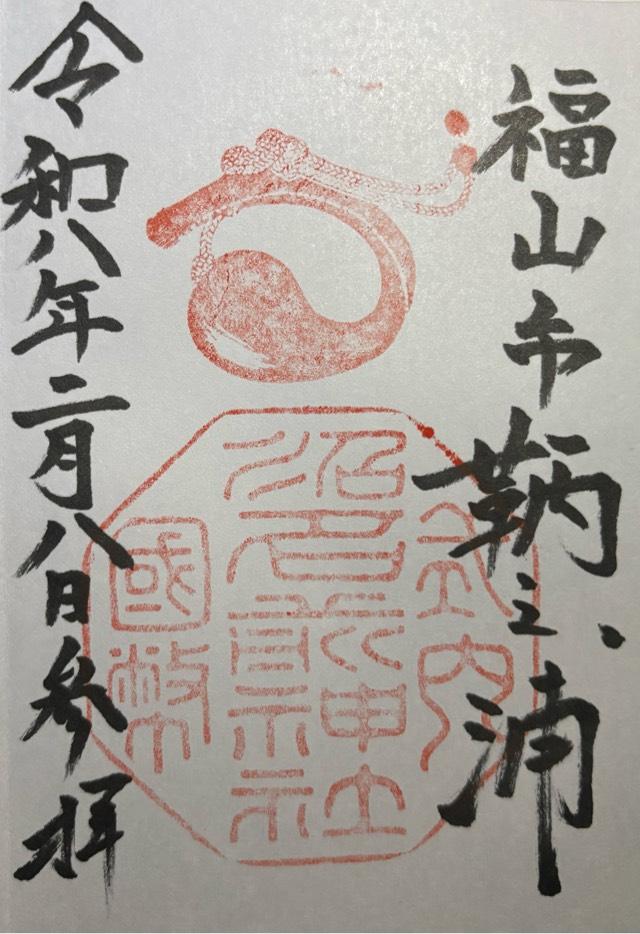 福山市鞆之浦
式内
沼名前神社
國幣
令和八年二月八日参拝